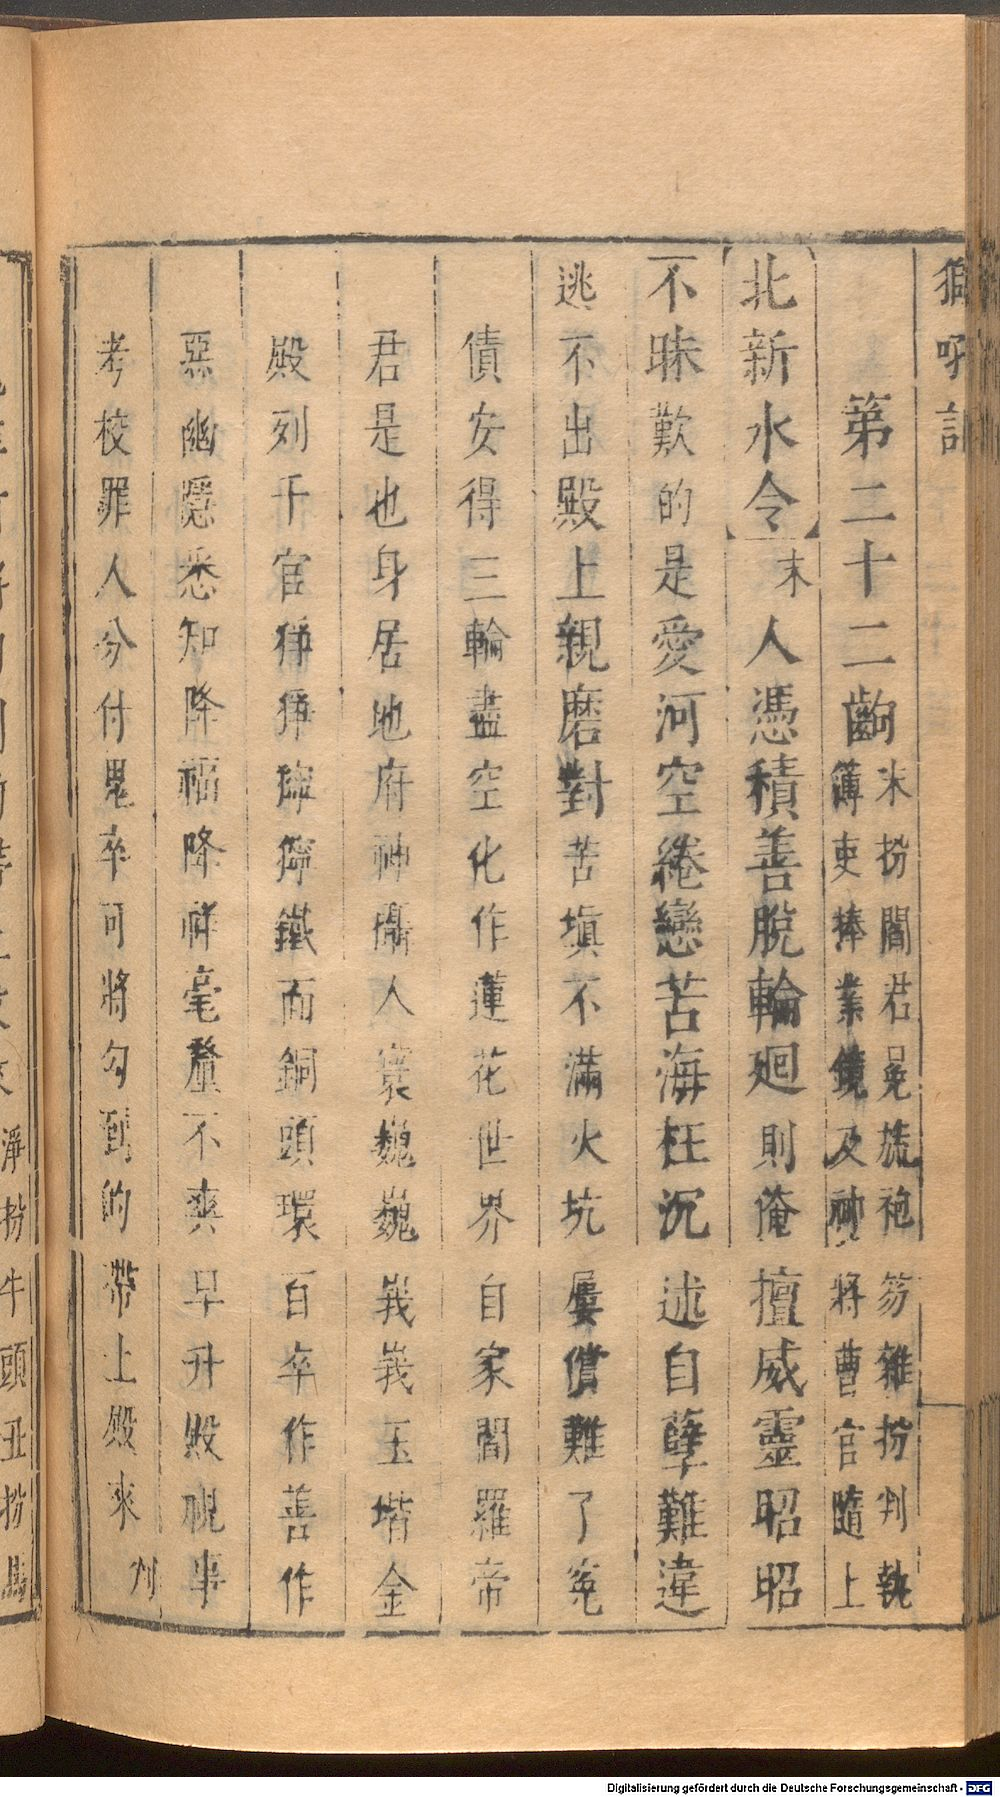 第二十二齣 末扮閻君冕旒袍笏雜扮判執
簿吏捧業鏡及神將曹官隨上
北新水令 末 人憑積善脫輪廻則俺擅威靈昭昭
不昧歎的是愛河空綣戀苦海枉沉述自孽難違
逃不出殿上親磨對苦塡不滿火坑屢償難了冤
債安得三輪盡空化作蓮花世界自家閻羅帝
君是也身居地府神攝人寰巍巍峩峩玉堦金
殿列千官猙猙獰獰鐵面銅頭環百卒作善作
惡幽隱悉知降福降祥毫釐不爽早升殿視事
考校罪人分付鬼卒可將勾到的帶上殿來 判
淨扮牛頭丑扮馬
Digitalisierung gefördert durch die Deutsche Forschungsgemeinschaft - DFG